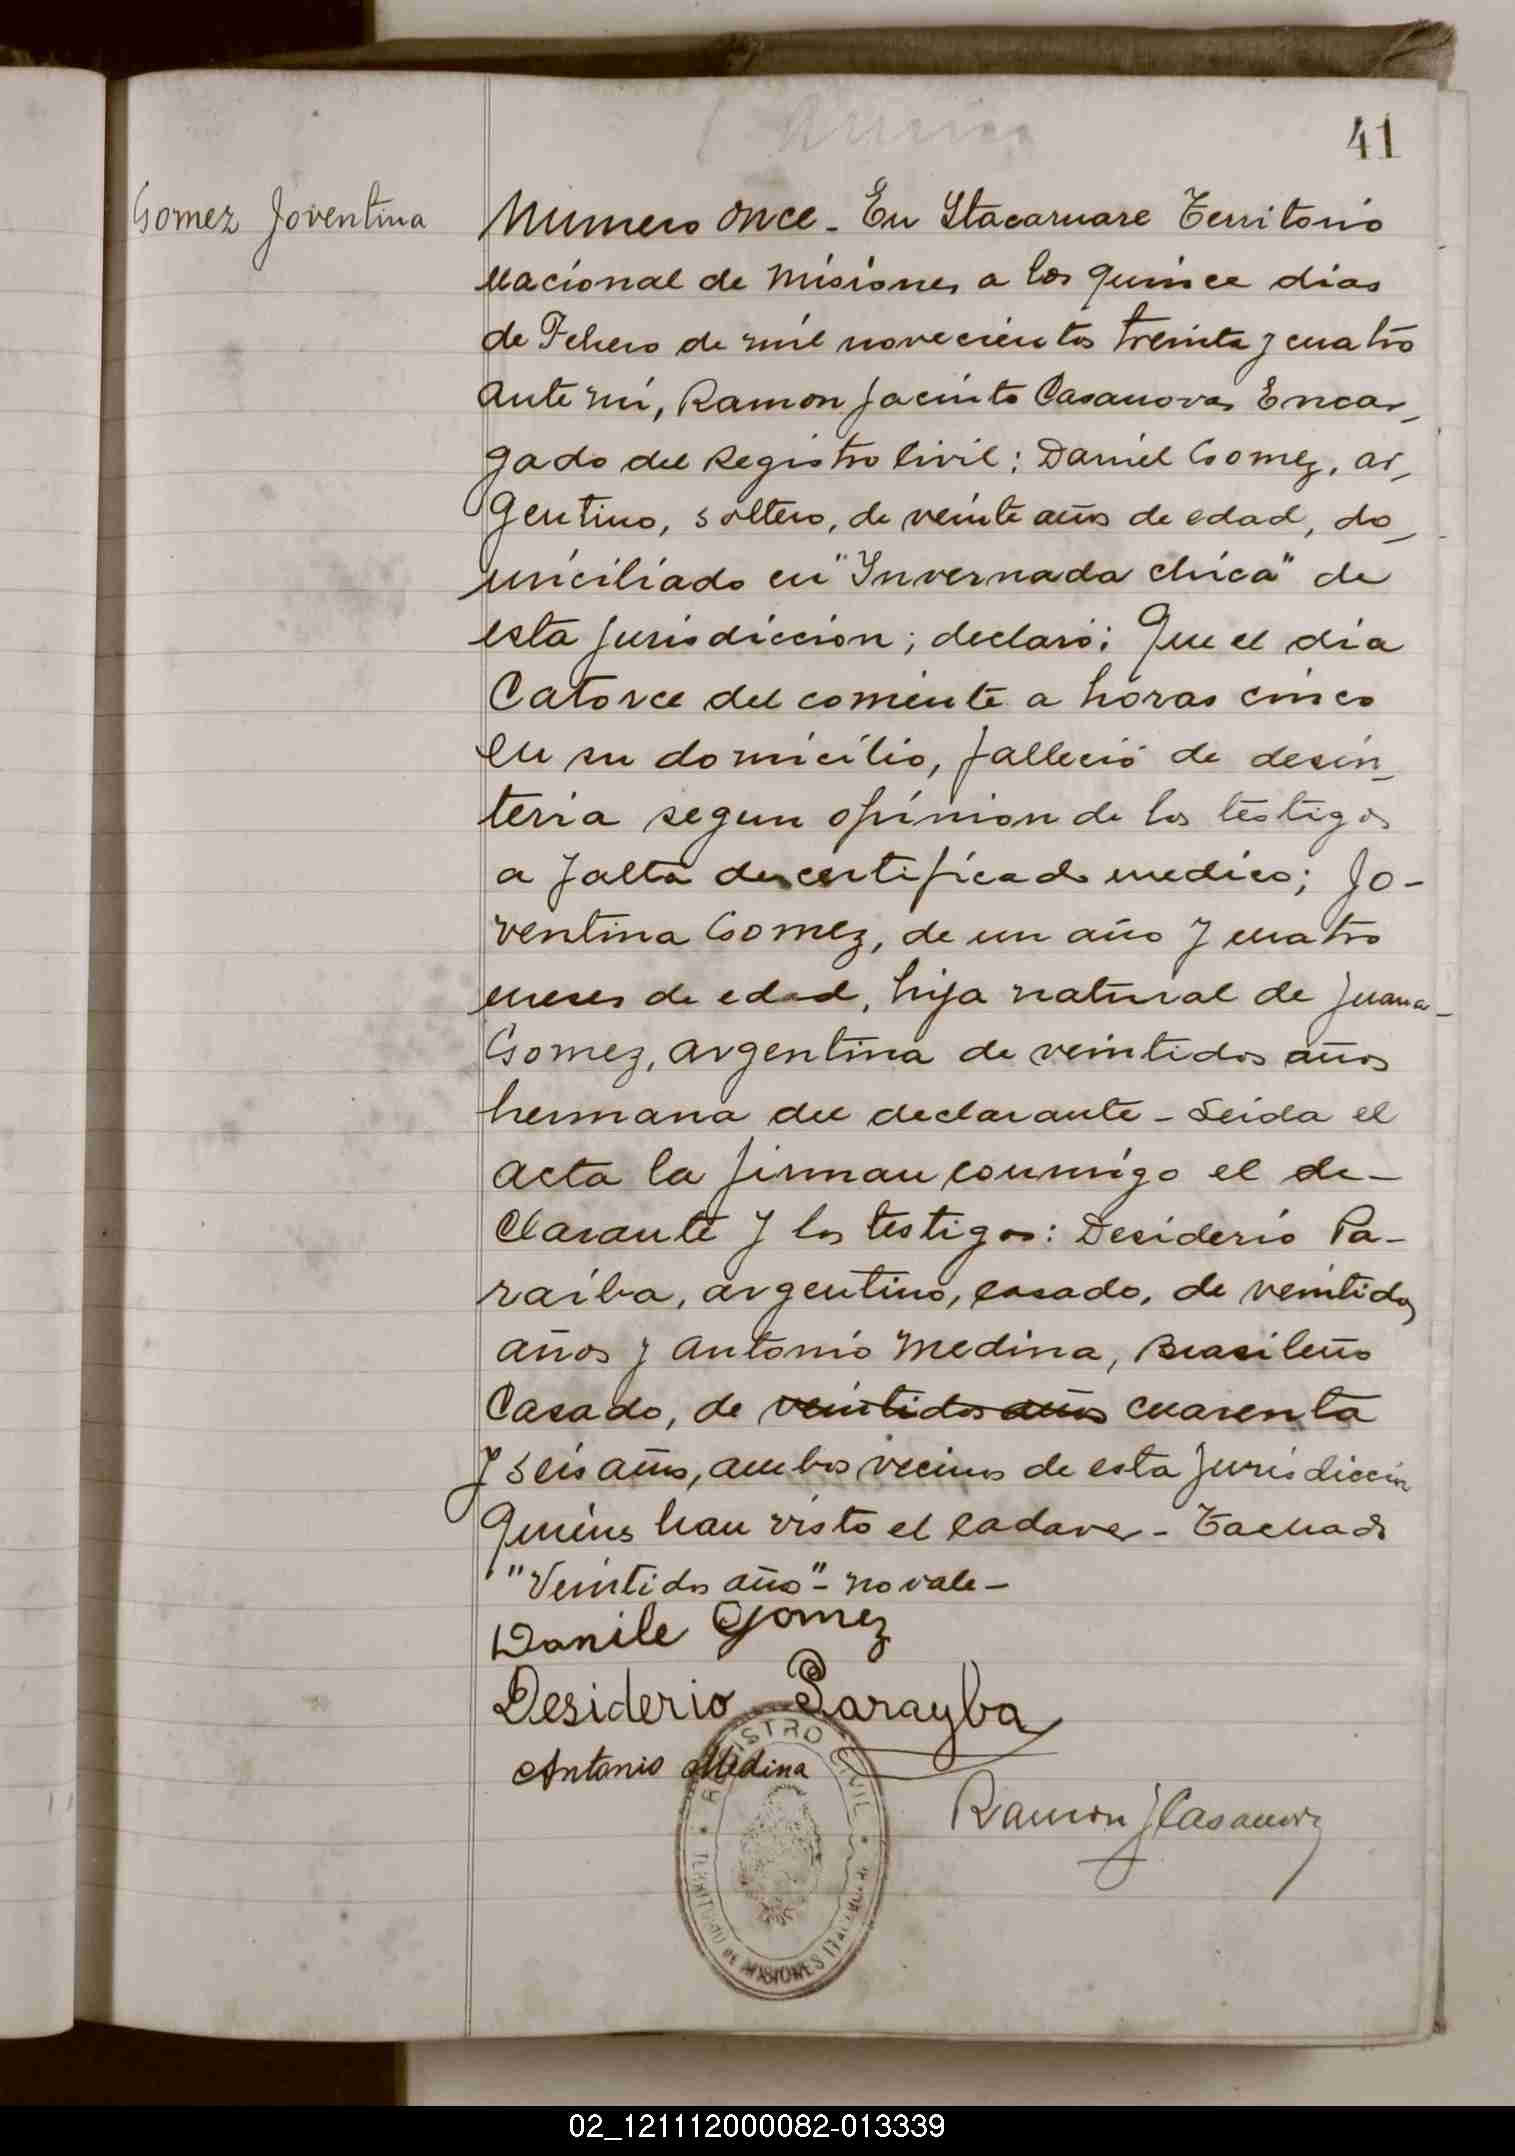 41
Gomez Joventina
Numero once - En Itacaruare Territorio
Nacional de Misiones a los quince dias
de Febrero de mil novecientos treinta y cuatro
ante mi, Ramon Jacinto Casanovas Encar-
gado del Registro Civil: Daniel Gomez, ar-
gentino, soltero, de veinte años de edad, do-
miciliado en "Invernada chica" de
esta jurisdiccion; declaró: Que el dia
Catorce del corriente a horas cinco
en su domicilio, falleció de desin-
teria segun opinion de los testigos
a falta de certificado medico; Jo-
ventina Gomez, de un año y cuatro
meses de edad, hija natural de Juana
Gomez, argentina de veintidos años
hermana del declarante - Leida el
acta la firman conmigo el de-
clarante y los testigos: Desiderio Pa-
raiba, argentino, casado, de veintidos
años y Antonio Medina, Brasileño
Casado, de veintidos años cuarenta
y seis años, ambos vecinos de esta jurisdiccion
Quienes han visto el cadaver - Tachado
"Veintidos años" - no vale -
Danile Gomez
Desiderio Parayba
Antonio Medina
Ramon J Casanova
REGISTRO CIVIL
TERRITORIO DE MISIONES
02_121112000082-013339